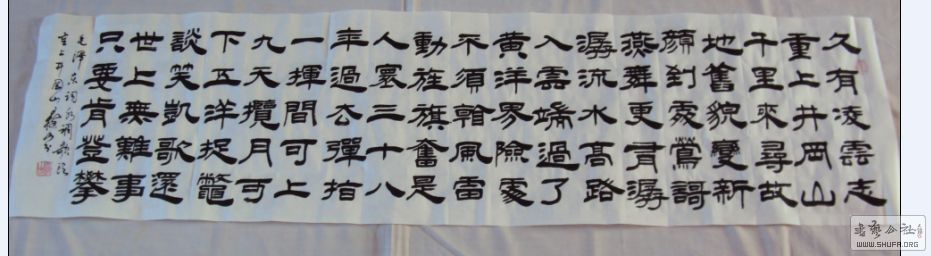 久有凌雲志
重上井岡山
千里來尋故
地舊貌變新
顏到處鶯謌
燕舞更有潺
潺流水高路
入雲端過了
黃洋界險處
不須看風雷
動旌旗奮是
人寰三十八
年過去彈指
一揮間可上
九天攬月可
下五洋捉鱉
談笑凱歌還
世上無難事
只要肯登攀
毛澤東詞水調歌頭
重上井岡山
書藝公社
WWW.SHUFA.ORG